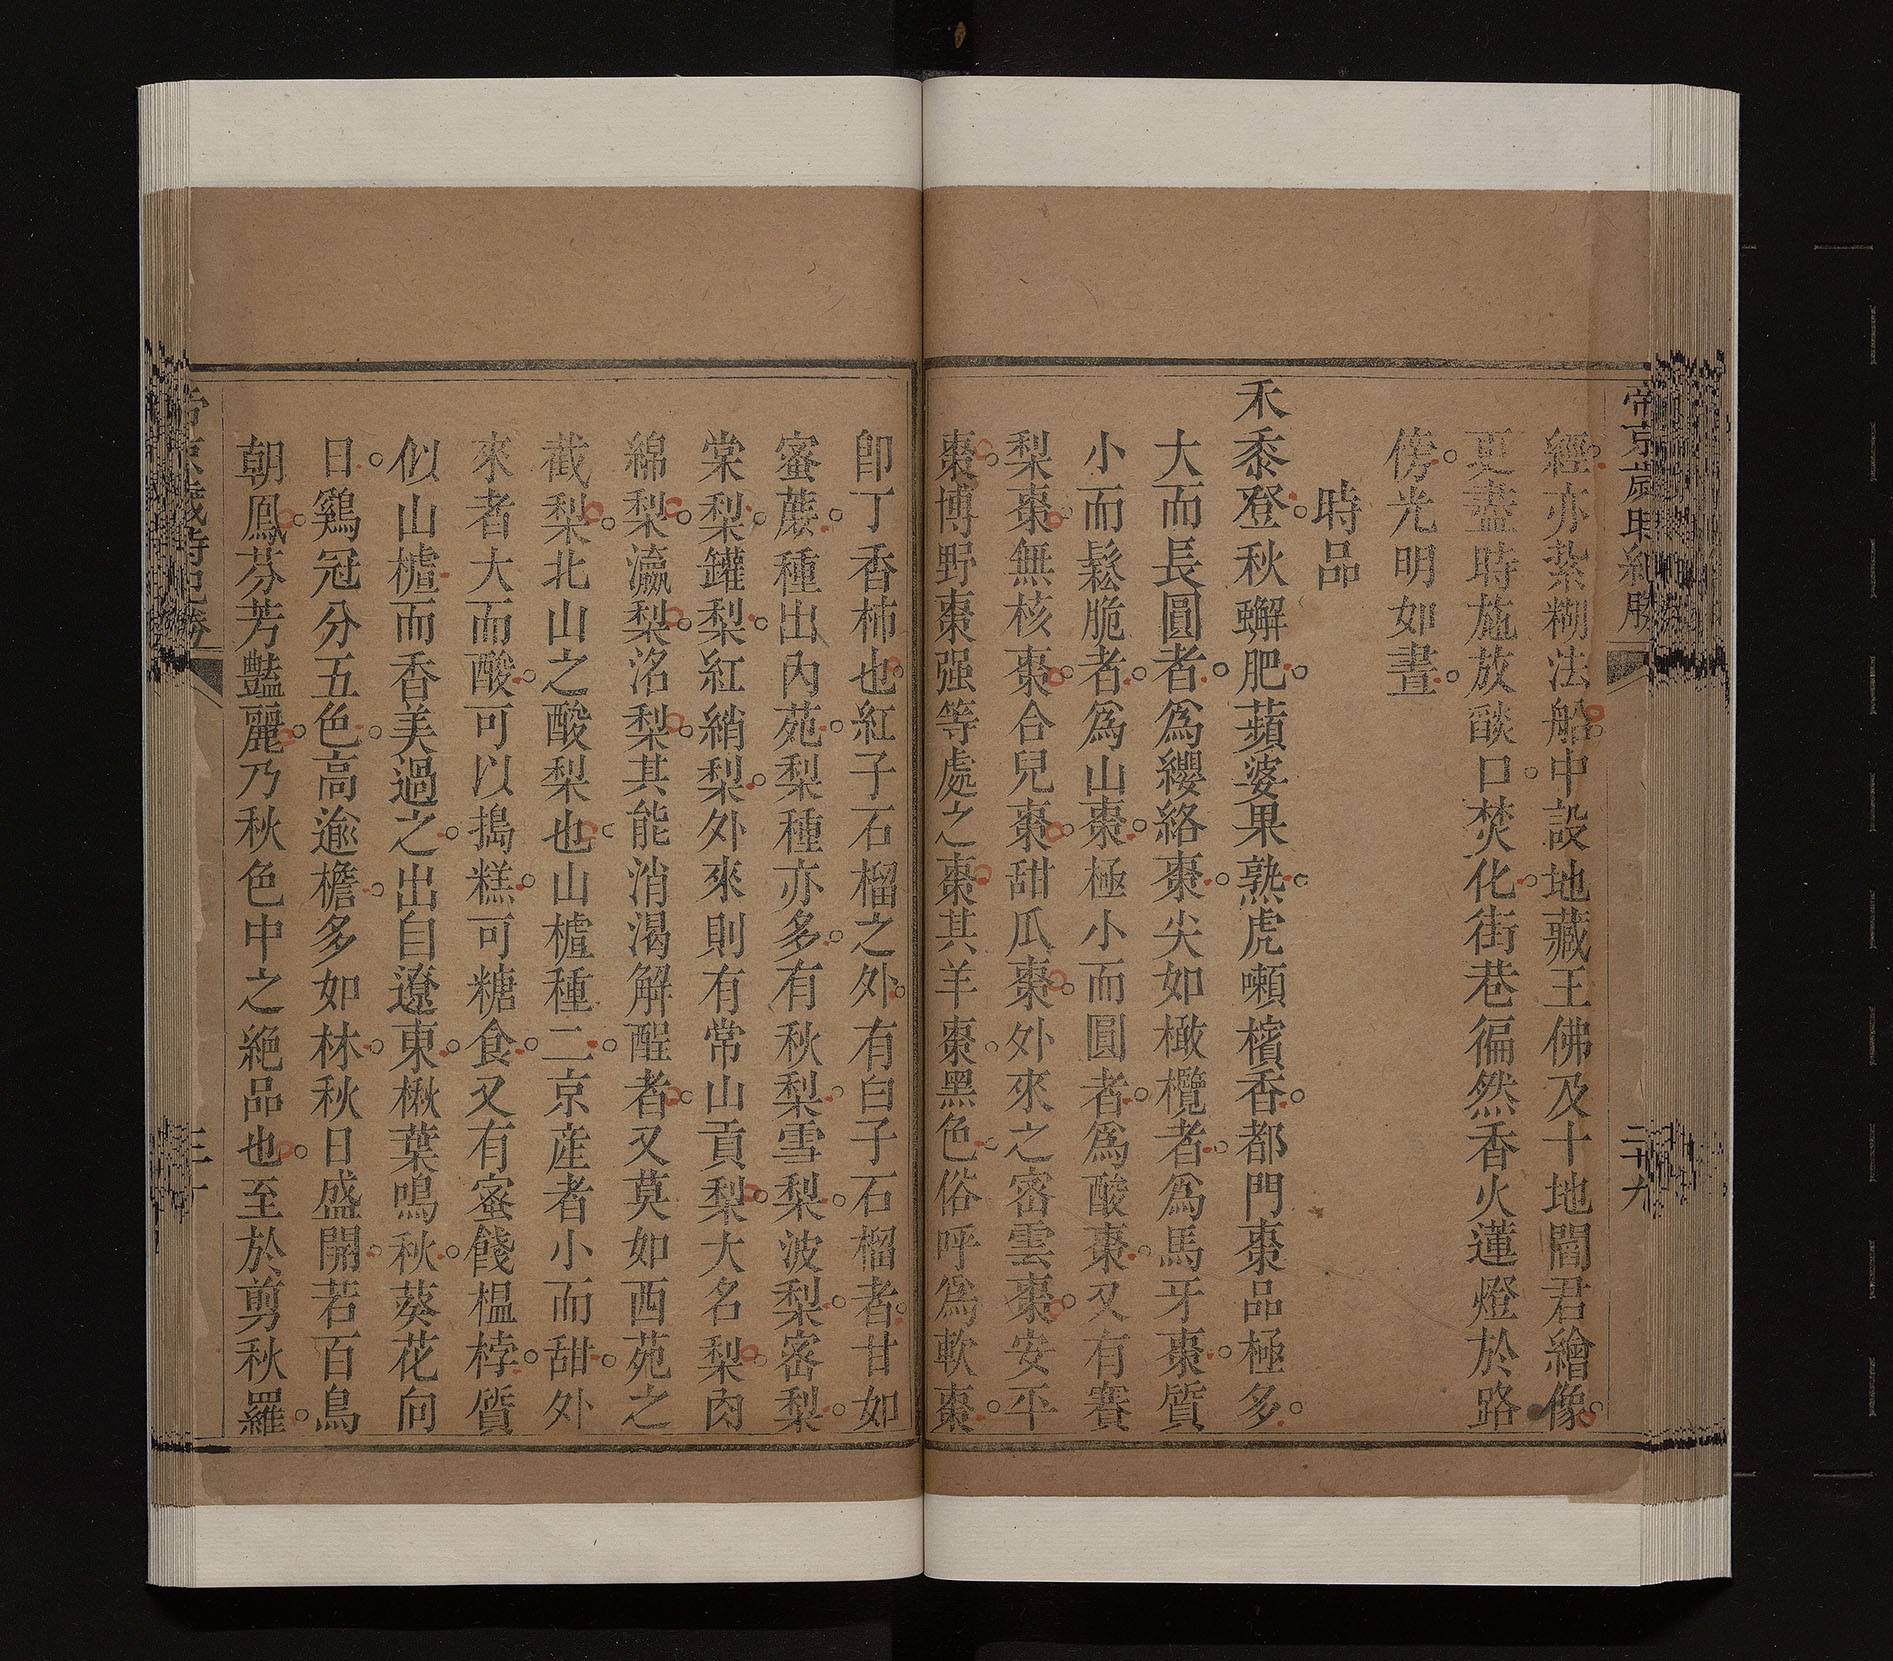 帝京歲時紀勝
二十九
經亦紮糊法船中設地藏王佛及十地閻君繪像
更盡時施放燄口焚化街巷徧然香火蓮燈於路
傍光明如晝
時品
禾黍登秋蠏肥蘋婆果熟虎喇檳香都門棗品極多
大而長圓者爲纓絡棗尖如橄欖者爲馬牙棗質
小而鬆脆者爲山棗極小而圓者爲酸棗又有賽
梨棗無核棗合兒棗甜瓜棗外來之密雲棗安平
棗博野棗强等處之棗其羊棗黑色俗呼爲軟棗
卽丁香柿也紅子石榴之外有白子石榴者甘如
蜜蔗種出內苑梨種亦多有秋梨雪梨波梨密梨
棠梨鑵梨紅綃梨外來則有常山貢梨大名梨肉
綿梨瀛梨洺梨其能消渴解酲者又莫如西苑之
截梨北山之酸梨也山樝種二京産者小而甜外
來者大而酸可以搗糕可糖食又有蜜餞榲桲質
似山樝而香美過之出自遼東楸葉鳴秋葵花向
日鷄冠分五色高逾檐多如林秋日盛開若百鳥
朝鳳芬芳豔麗乃秋色中之絶品也至於剪秋羅
帝京歲時紀勝
三十